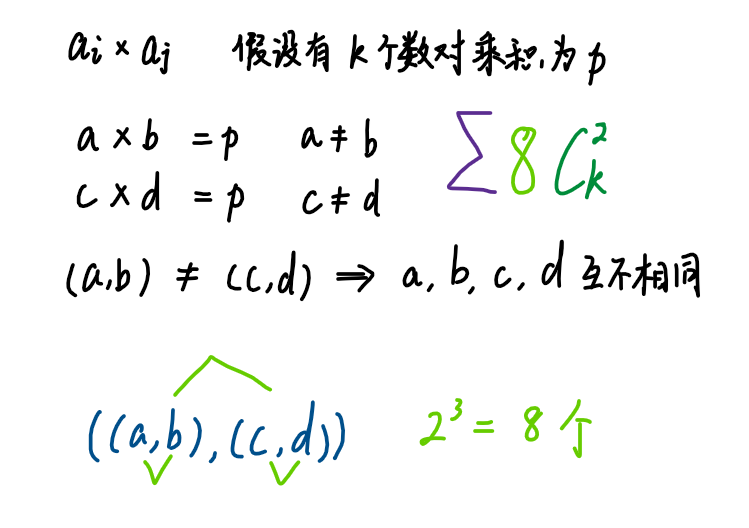 aᵢ × aⱼ 假设有 k 个数对乘积为 p
a × b = p a ≠ b ∑ 8 C²ₖ
c × d = p c ≠ d
(a,b) ≠ (c,d) ⇒ a, b, c, d 互不相同
((a,b),(c,d)) 2³ = 8 个